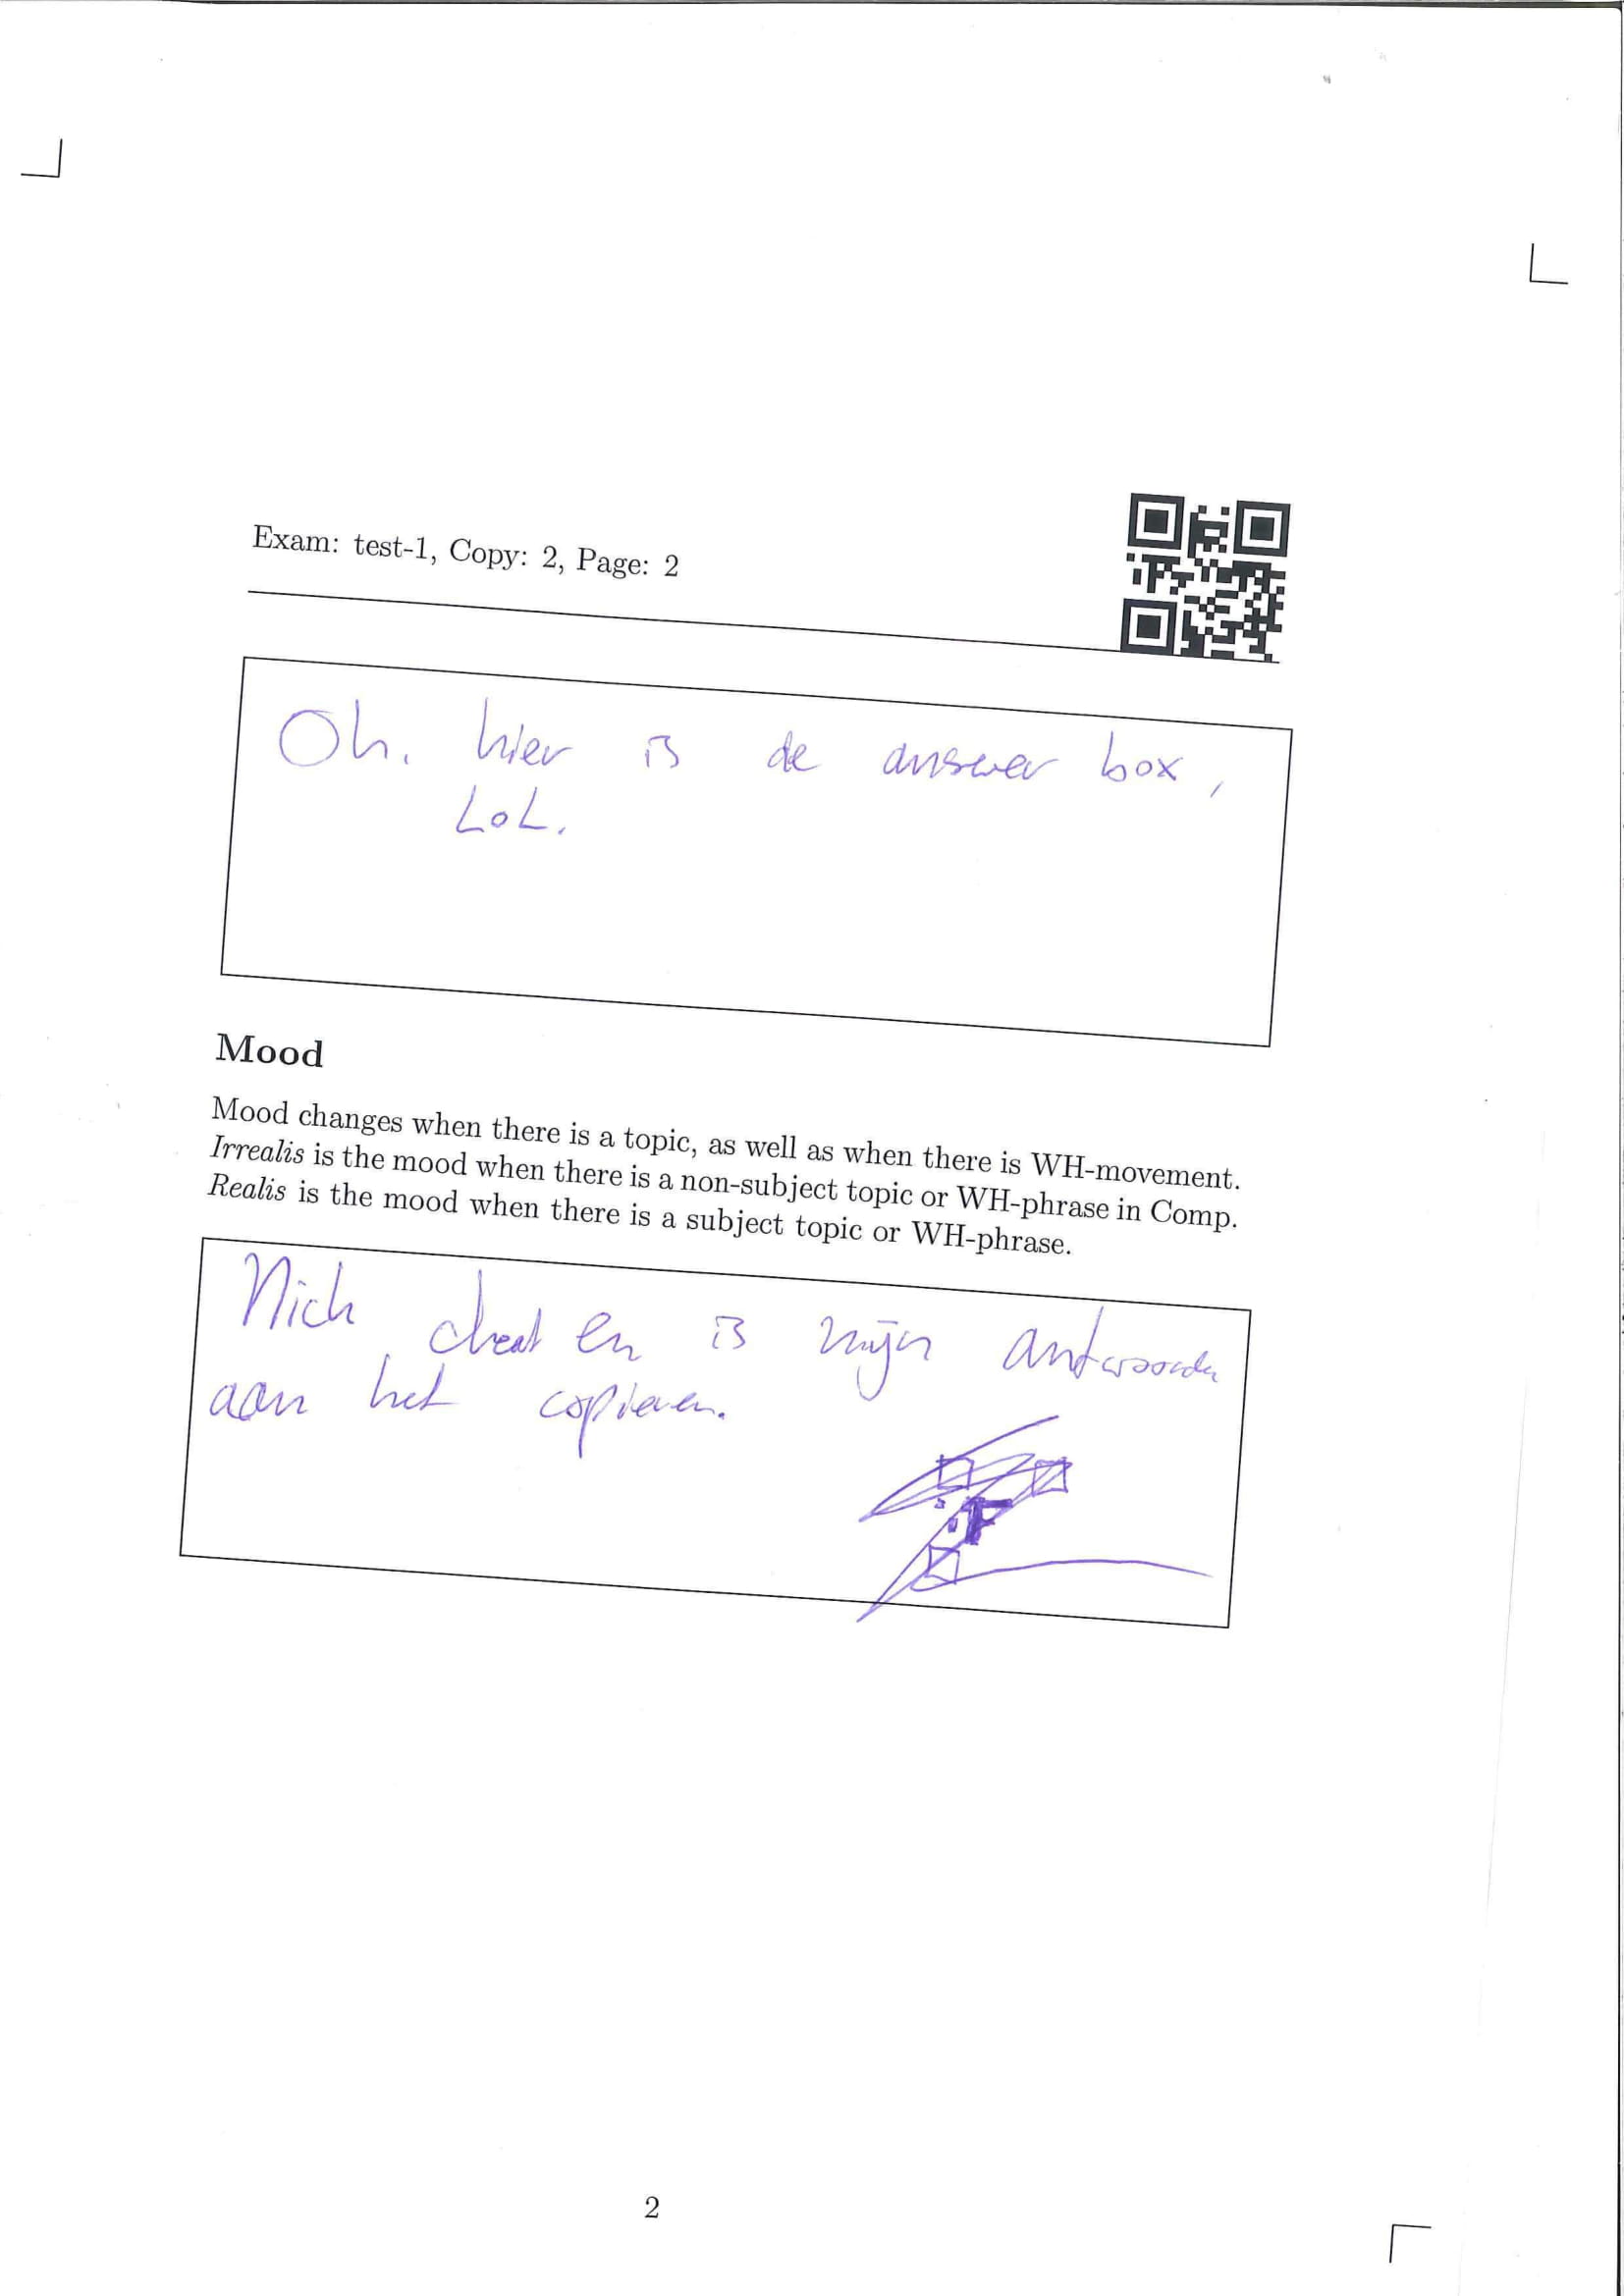 Exam: test-1, Copy: 2, Page: 2
Oh. hier is de answer box,
LoL.
Mood
Mood changes when there is a topic, as well as when there is WH-movement.
Irrealis is the mood when there is a non-subject topic or WH-phrase in Comp.
Realis is the mood when there is a subject topic or WH-phrase.
Nick cheat en is mijn antwoorden
aan het copieren.
2